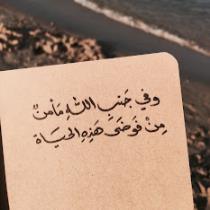 وفي جَنبِ اللّٰهِ مَأمنٌ
مِنْ فَوضَىٰ هَذِهِ الحَيَاة